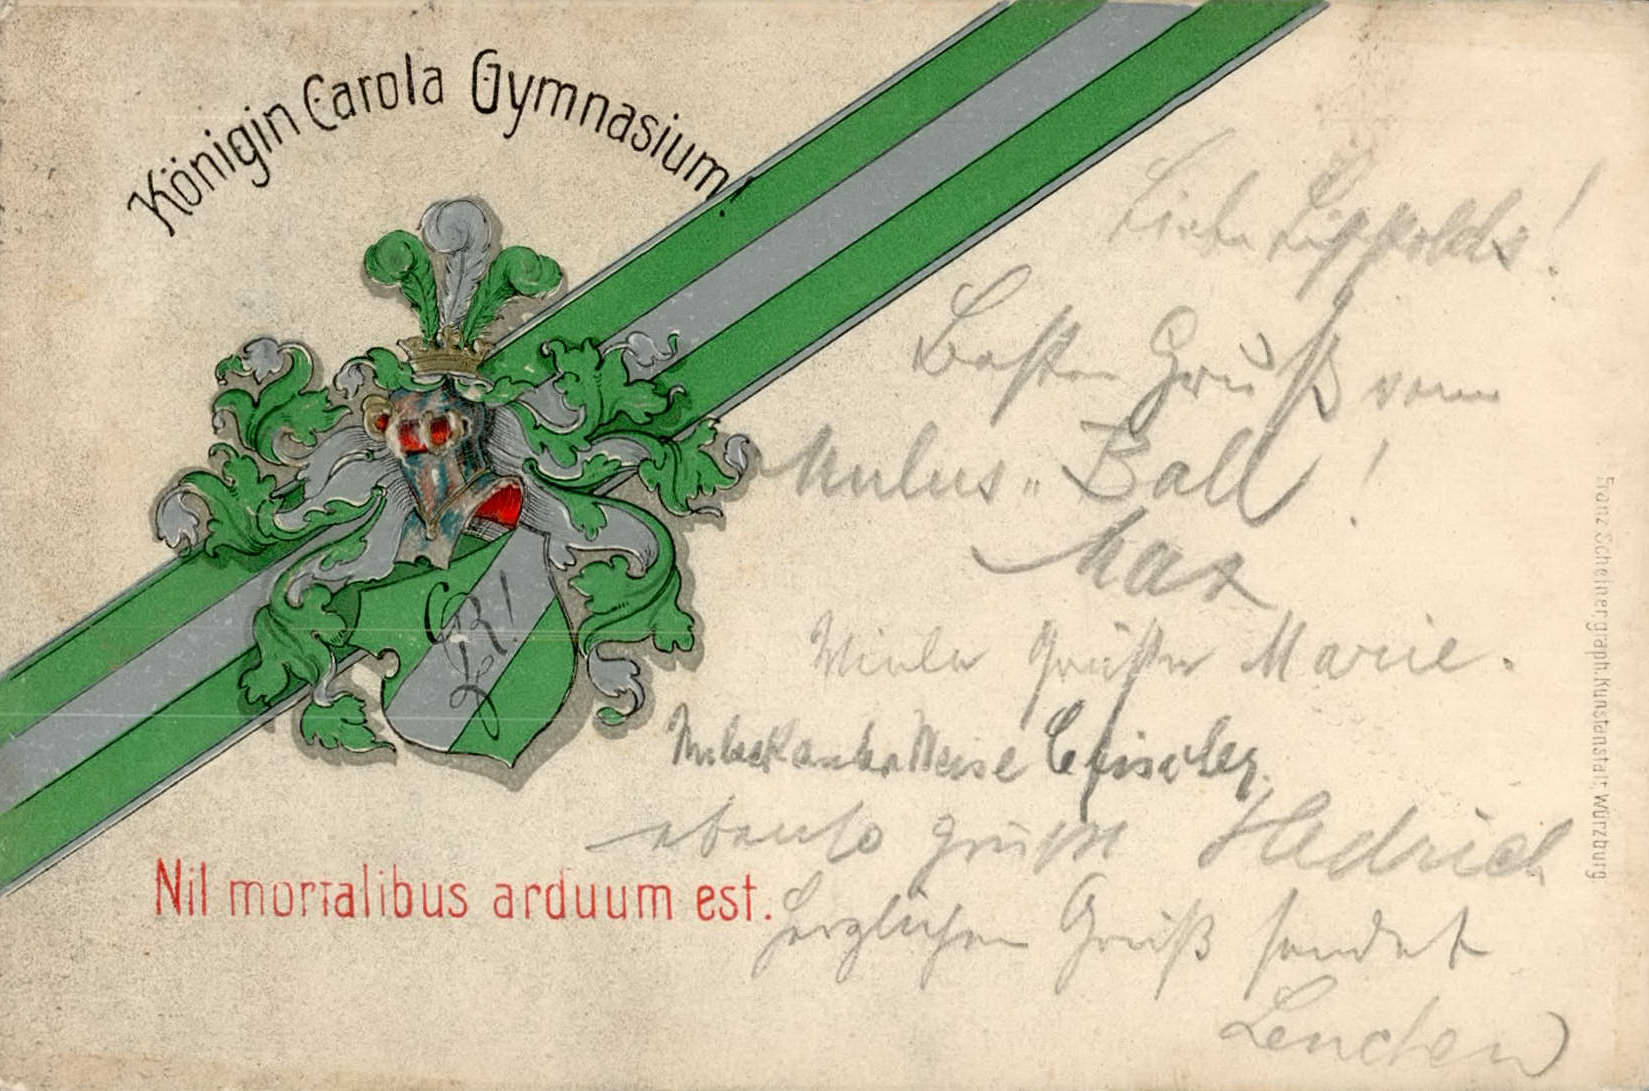 Königin Carola Gymnasium!
Liebe Lippolds!
Besten Gruß vom
Mulus „ Ball!
Max
Viele Grüße Marie.
Unbekannter Weise
ebenso grüßt Hedrich
Nil mortalibus arduum est.
Herzlichen Gruß sendet
Lenchen
Franz Scheiner graph. Kunstanstalt, Würzburg.